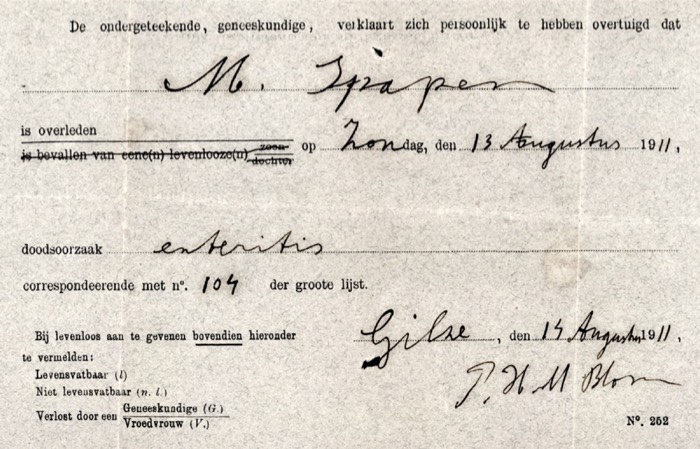 De ondergeteekende, geneeskundige, verklaart zich persoonlijk te hebben overtuigd dat
M. Spapen
is overleden
is bevallen van eene(n) levenlooze(n) zoon dochter op Zondag, den 13 Augustus 1911,
doodsoorzaak enteritis
correspondeerende met nº. 104 der groote lijst.
Bij levenloos aan te gevenen bovendien hieronder
te vermelden:
Gilze, den 14 Augustus 1911,
Levensvatbaar (l)
Niet levensvatbaar (n. l.)
P. H. M Blom
Verlost door een Geneeskundige (G.)
Vroedvrouw (V.)
Nº. 252